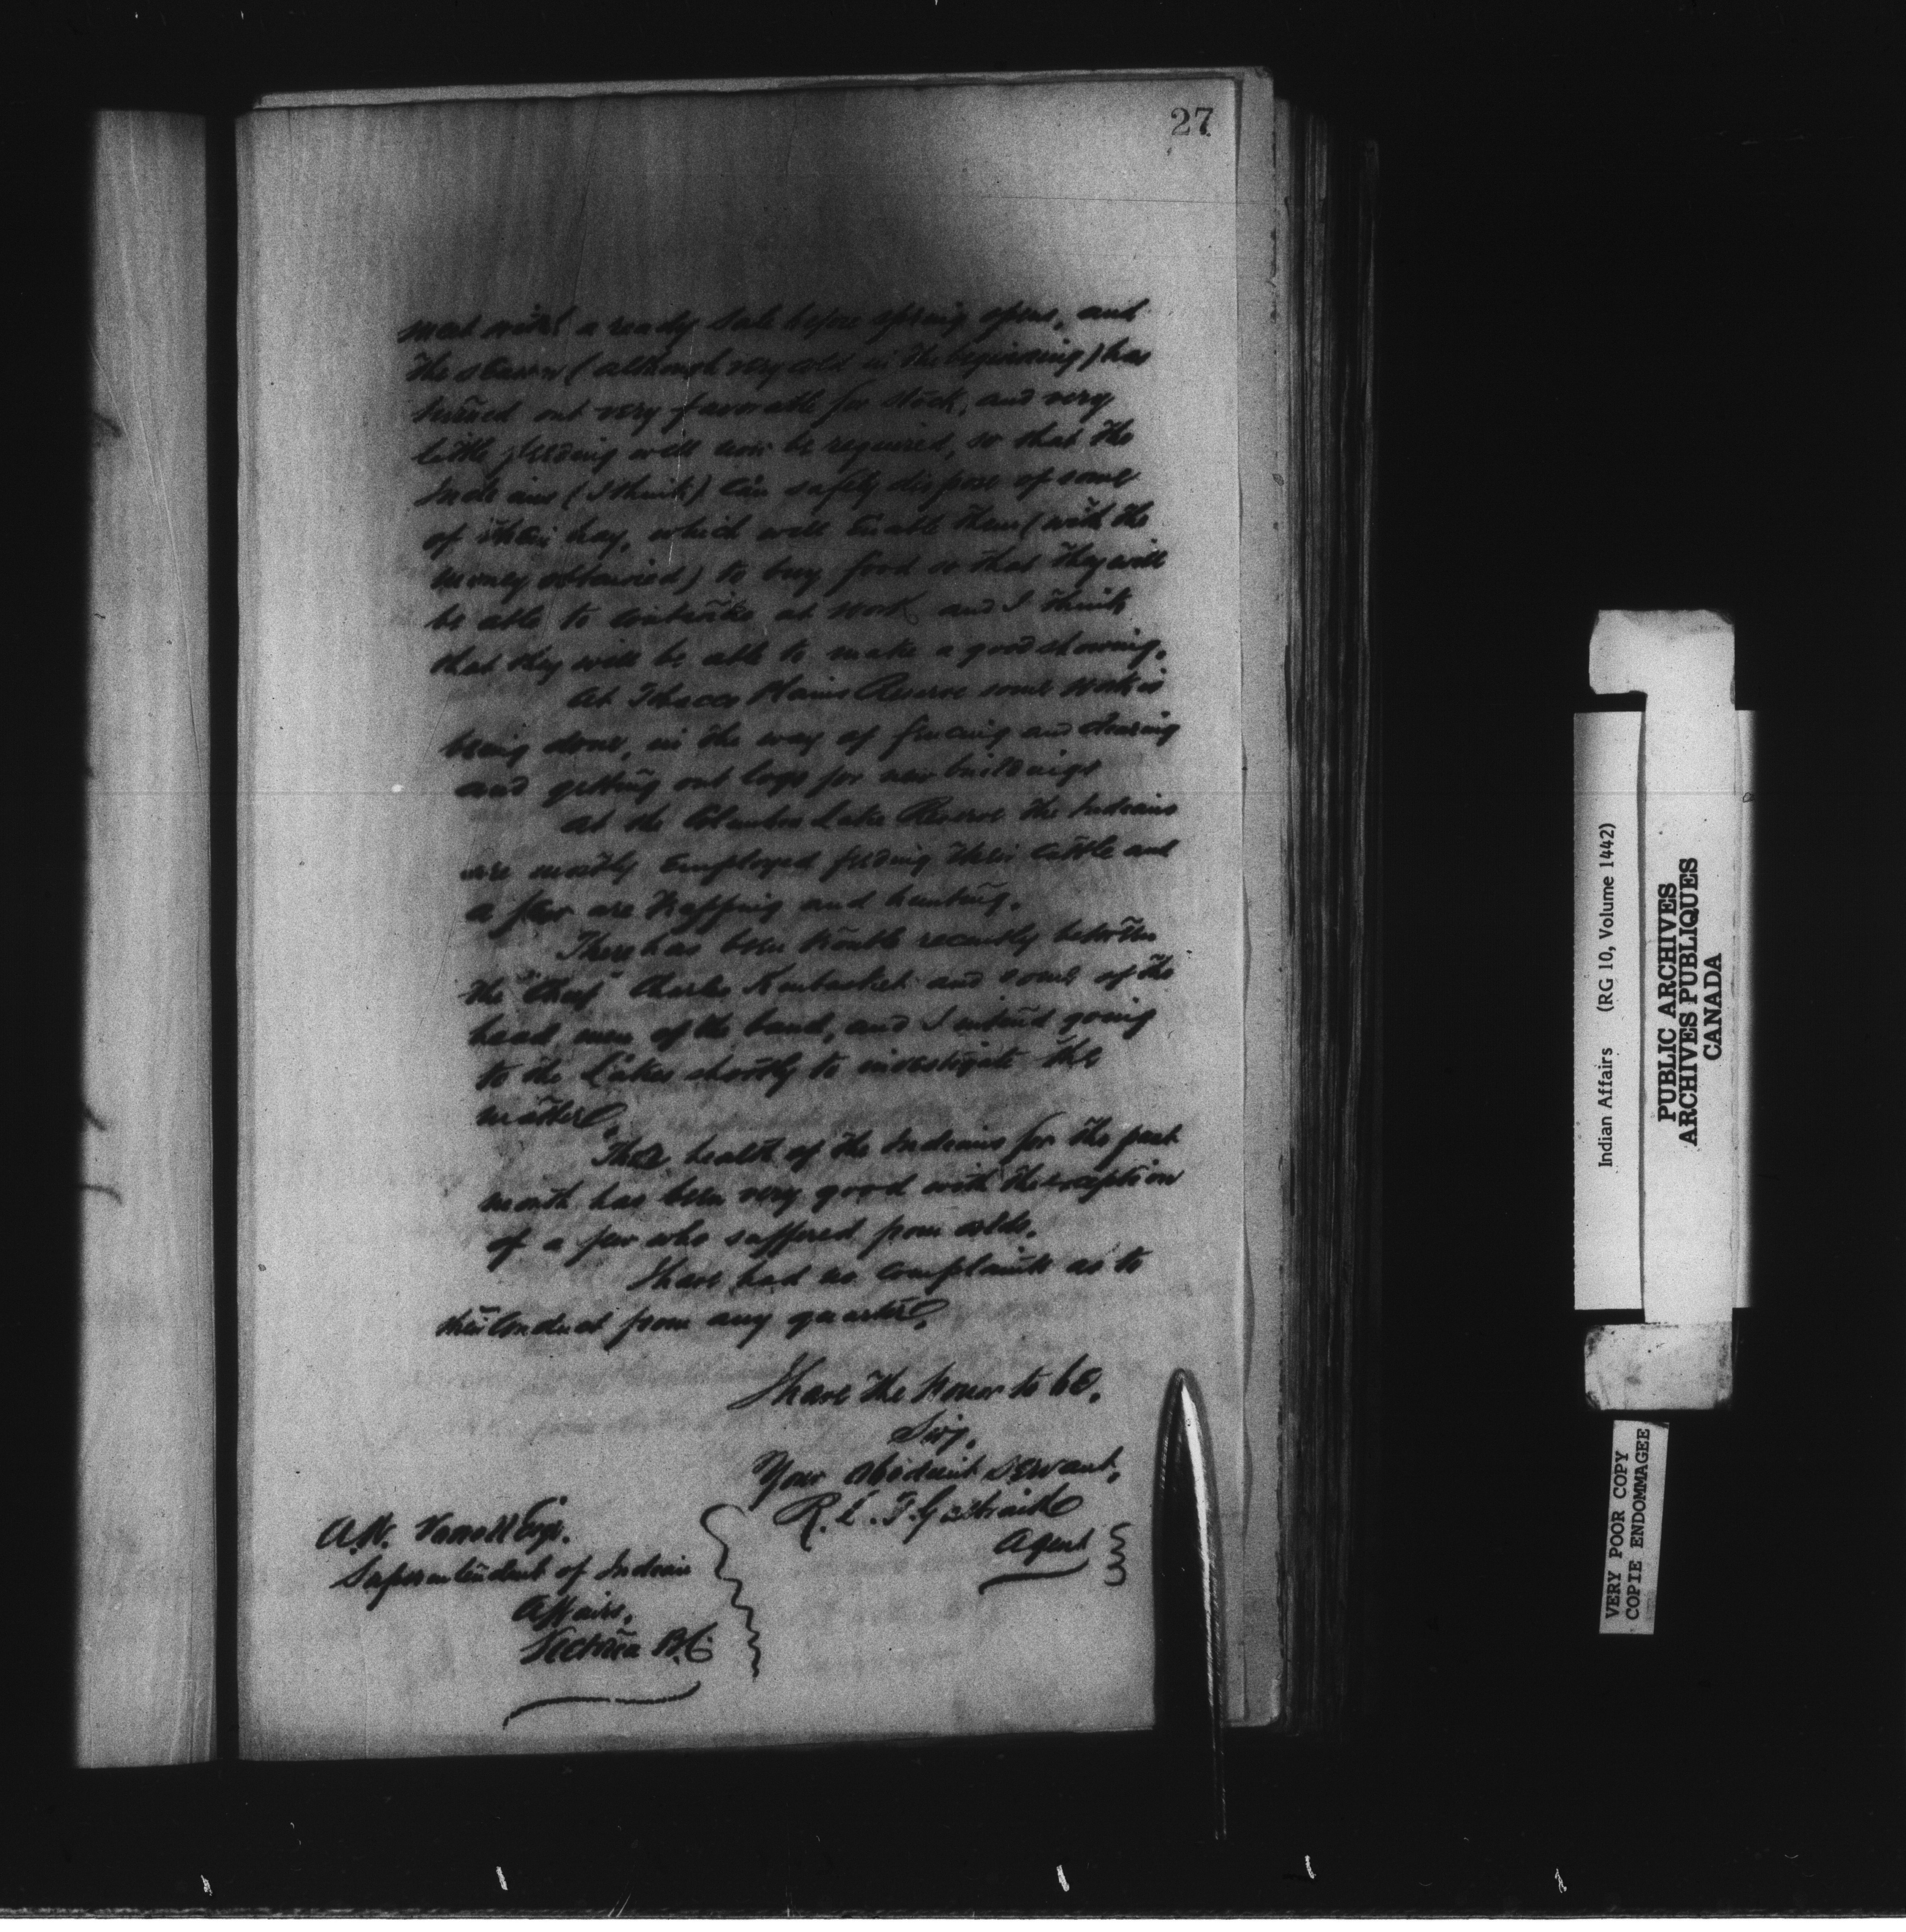 27
meet with a ready sale before spring opens, and
the season (although very cold in the beginning) has
turned out very favorable for stock, and very
little feeding will now be required, so that the
Indians (I think) can safely dispose of some
of their hay, which will enable them (with the
money obtained) to buy food so that they will
be able to continue at work and I think
that they will be able to make a good showing.
At Tobacco Plains Reserve some work is
being done, in the way of fencing and clearing
and getting out logs for new buildings
At the Columbia Lake Reserve the Indians
are mostly employed feeding their cattle and
a few are trapping and hunting.
There has been trouble recently between
the "Chief" Charles Kinbasket and some of the
head men of the band, and I intend going
to the Lakes shortly to investigate the
matter.
The health of the Indians for the past
month has been very good with the exception
of a few who suffered from colds.
I have had no complaints as to
their conduct from any quarter.
I have the honor to be,
Sir,
Your obedient servant,
R. L. T. Galbraith
Agent
A.W. Vowell Esq.
Superintendent of Indian
Affairs,
Victoria B.C.
Indian Affairs (RG 10, Volume 1442)
PUBLIC ARCHIVES
ARCHIVES PUBLIQUES
CANADA
VERY POOR COPY
COPIE ENDOMMAGEE